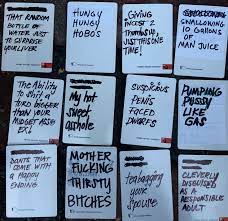 THAT RANDOM
BOTTLE OF
WATER JUST
TO SURVIVE
YOUR LIVER
HUNGY
HUNGY
HOBOS
"GIVING
MOIST 2
THUMBS UP,
JUST THIS ONE
TIME!
SWALLOWING
10 GALLONS
OF
MAN JUICE
The Ability
TO Shit a
turd bigger
than your
MIDGET ASS
EX!
My hot
sweet
asshole
SUSPICIOUS
PENIS
FACED
DWARFS
PUMPING
PUSSY
LIKE
GAS
PANTS THAT
COME WITH
a Happy
ENDING
MOTHER
FUCKING
THIRSTY
BITCHES
Teabagging
your
spouse
CLEVERLY
DISGUISED
AS A
RESPONSIBLE
ADULT